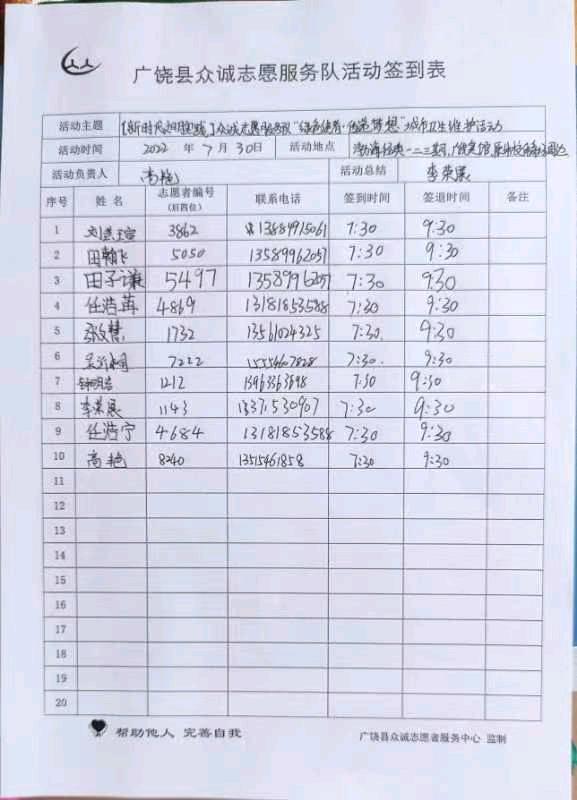 广饶县众诚志愿服务队活动签到表
活动主题 【新时代文明实践】众诚志愿服务队"绿色使者·创造梦想"城市卫生维护活动
活动时间 2022 年 7 月 30日 活动地点 渤海经典一二三期,
活动负责人 高艳 活动总结 李荣展
序号 姓名 志愿者编号 (后四位) 联系电话 签到时间 签退时间 备注
1 3862 13889915061 7:30 9:30
2 田翰飞 5050 13589962057 7:30 9:30
3 田子谦 5497 13589962057 7:30 9:30
4 任浩苒 4869 13181853588 7:30 9:30
5 张慧 1732 13561024325 7:30 9:30
6 7222 15554607828 7:30 9:30
7 1212 13963363698 7:30 9:30
8 李荣展 1143 13371530907 7:30 9:30
9 任浩宁 4684 13181853588 7:30 9:30
10 高艳 8240 13515461858 7:30 9:30
11
12
13
14
15
16
17
18
19
20
帮助他人 完善自我 广饶县众诚志愿者服务中心 监制